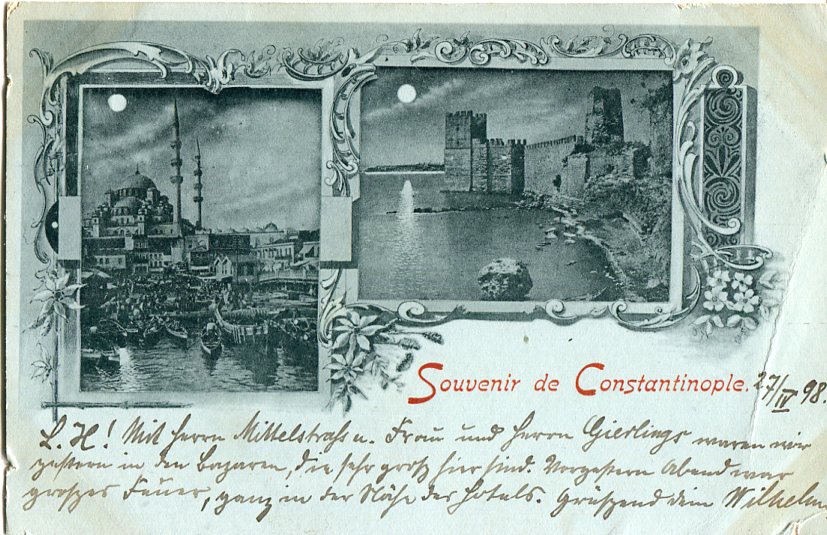 Souvenir de Constantinople. 27/IV 98.
L. H! Mit Herrn Mittelstraß u. Frau und Herrn Gierlings waren wir
gestern in den Bazaren, die sehr groß hier sind. Vorgestern Abend war
großes Feuer, ganz in der Nähe des Hotels. Grüßend dein Wilhelm